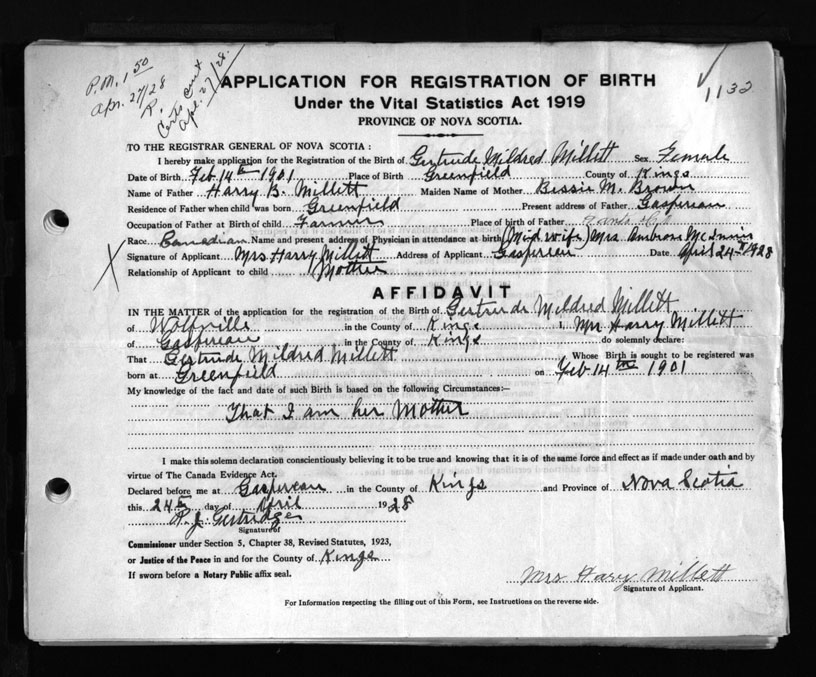 P.M. 1 50
Apr. 27/28
P.
Certs cont
Apl. 27/28.
1132
APPLICATION FOR REGISTRATION OF BIRTH
Under the Vital Statistics Act 1919
PROVINCE OF NOVA SCOTIA.
TO THE REGISTRAR GENERAL OF NOVA SCOTIA :
I hereby make application for the Registration of the Birth of Gertrude Mildred Millett Sex Female
Date of Birth Feb. 14th 1901 Place of Birth Greenfield County of Kings
Name of Father Harry B. Millett Maiden Name of Mother Bessie M. Brown
Residence of Father when child was born Greenfield Present address of Father Gaspereau
Occupation of Father at Birth of child Farmer Place of birth of Father
Race Canadian Name and present address of Physician in attendance at birth (Mid wife) Mrs Ambrose McInnis
Signature of Applicant Mrs Harry Millett Address of Applicant Gaspereau Date April 24th 1928
Relationship of Applicant to child Mother
X
AFFIDAVIT
IN THE MATTER of the application for the registration of the Birth of Gertrude Mildred Millett
of Wolfville in the County of Kings I, Mrs Harry Millett
of Gaspereau in the County of Kings do solemnly declare:
That Gertrude Mildred Millett Whose Birth is sought to be registered was
born at Greenfield on Feb 14th 1901
My knowledge of the fact and date of such Birth is based on the following Circumstances:—
That I am her Mother
I make this solemn declaration conscientiously believing it to be true and knowing that it is of the same force and effect as if made under oath and by
virtue of The Canada Evidence Act.
Declared before me at Gaspereau in the County of Kings and Province of Nova Scotia
this 24th day of April 1928
R. J. Gertridge
Signature of
Commissioner under Section 5, Chapter 38, Revised Statutes, 1923,
or Justice of the Peace in and for the County of Kings
If sworn before a Notary Public affix seal.
Mrs Harry Millett
Signature of Applicant.
For Information respecting the filling out of this Form, see Instructions on the reverse side.